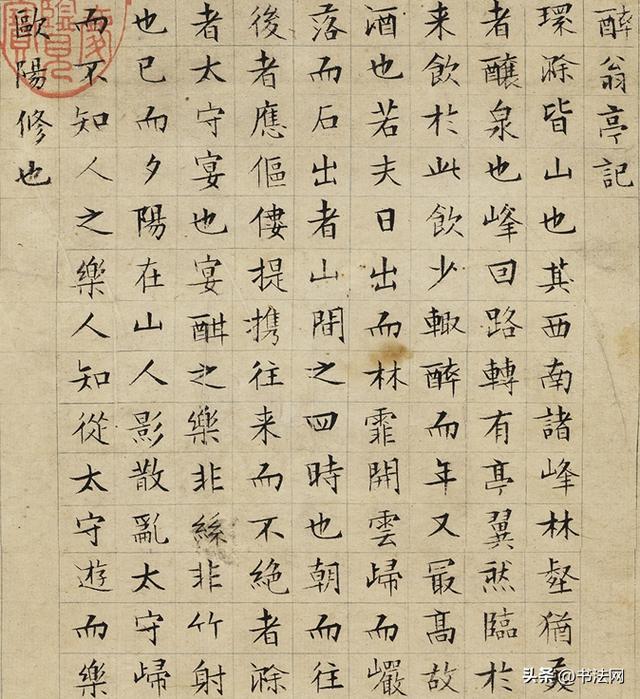 醉翁亭記
環滁皆山也其西南諸峰林壑猶
者釀泉也峰回路轉有亭翼然臨於
来飲於此飲少輒醉而年又最高故
酒也若夫日出而林霏開雲歸而巖
落而石出者山間之四時也朝而往
後者應傴僂提携往来而不絶者滁
者太守宴也宴酣之樂非絲非竹射
也已而夕陽在山人影散亂太守歸
而不知人之樂人知從太守遊而樂
歐陽修也
头条@书法网